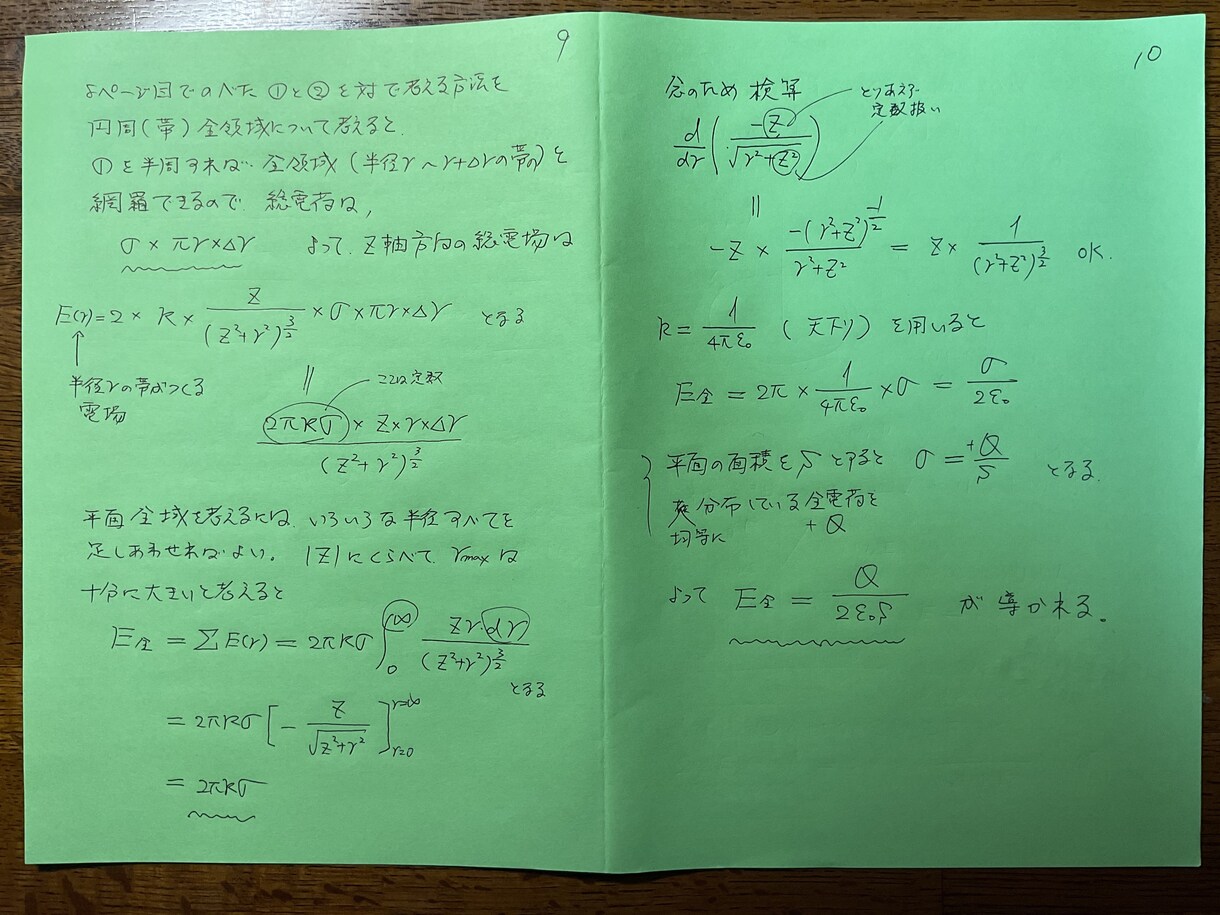 9
5ページ目でのべた ①と②を対で考える方法を
円周(帯)全領域について考えると、
①を半周すれば 全領域 (半径r〜r+Δrの帯の)を
網羅できるので、総電荷は,
σ × πr×Δr よって、Z軸方向の総電場は
E(r) = 2 × k × Z/(Z²+r²)^(3/2) × σ×πr×Δr となる
↑
半径rの帯がつくる
電場
||
ここは定数
2πkσ × Z×r×Δr/(Z²+r²)^(3/2)
平面全域を考えるには、いろいろな半径すべてを
足しあわせればよい。 |Z|にくらべて、rmaxは
十分に大きいと考えると
E全 = ΣE(r) = 2πkσ ∫₀^∞ Zr・dr/(Z²+r²)^(3/2)
となる
= 2πkσ [ - Z/√(Z²+r²) ]_(r=0)^(r=∞)
= 2πkσ
10
念のため 検算
とりあえず
定数扱い
d/dr ( -Z/√(r²+Z²) )
||
-Z × -(r²+Z²)^(-1/2)/(r²+Z²) = Z× 1/(r²+Z²)^(3/2) OK.
k = 1/4πε₀ (天下り) を用いると
E全 = 2π × 1/4πε₀ × σ = σ/2ε₀
平面の面積をSとすると σ = +Q/S となる.
分布している全電荷を
均等に +Q
よって E全 = Q/2ε₀S が導かれる。